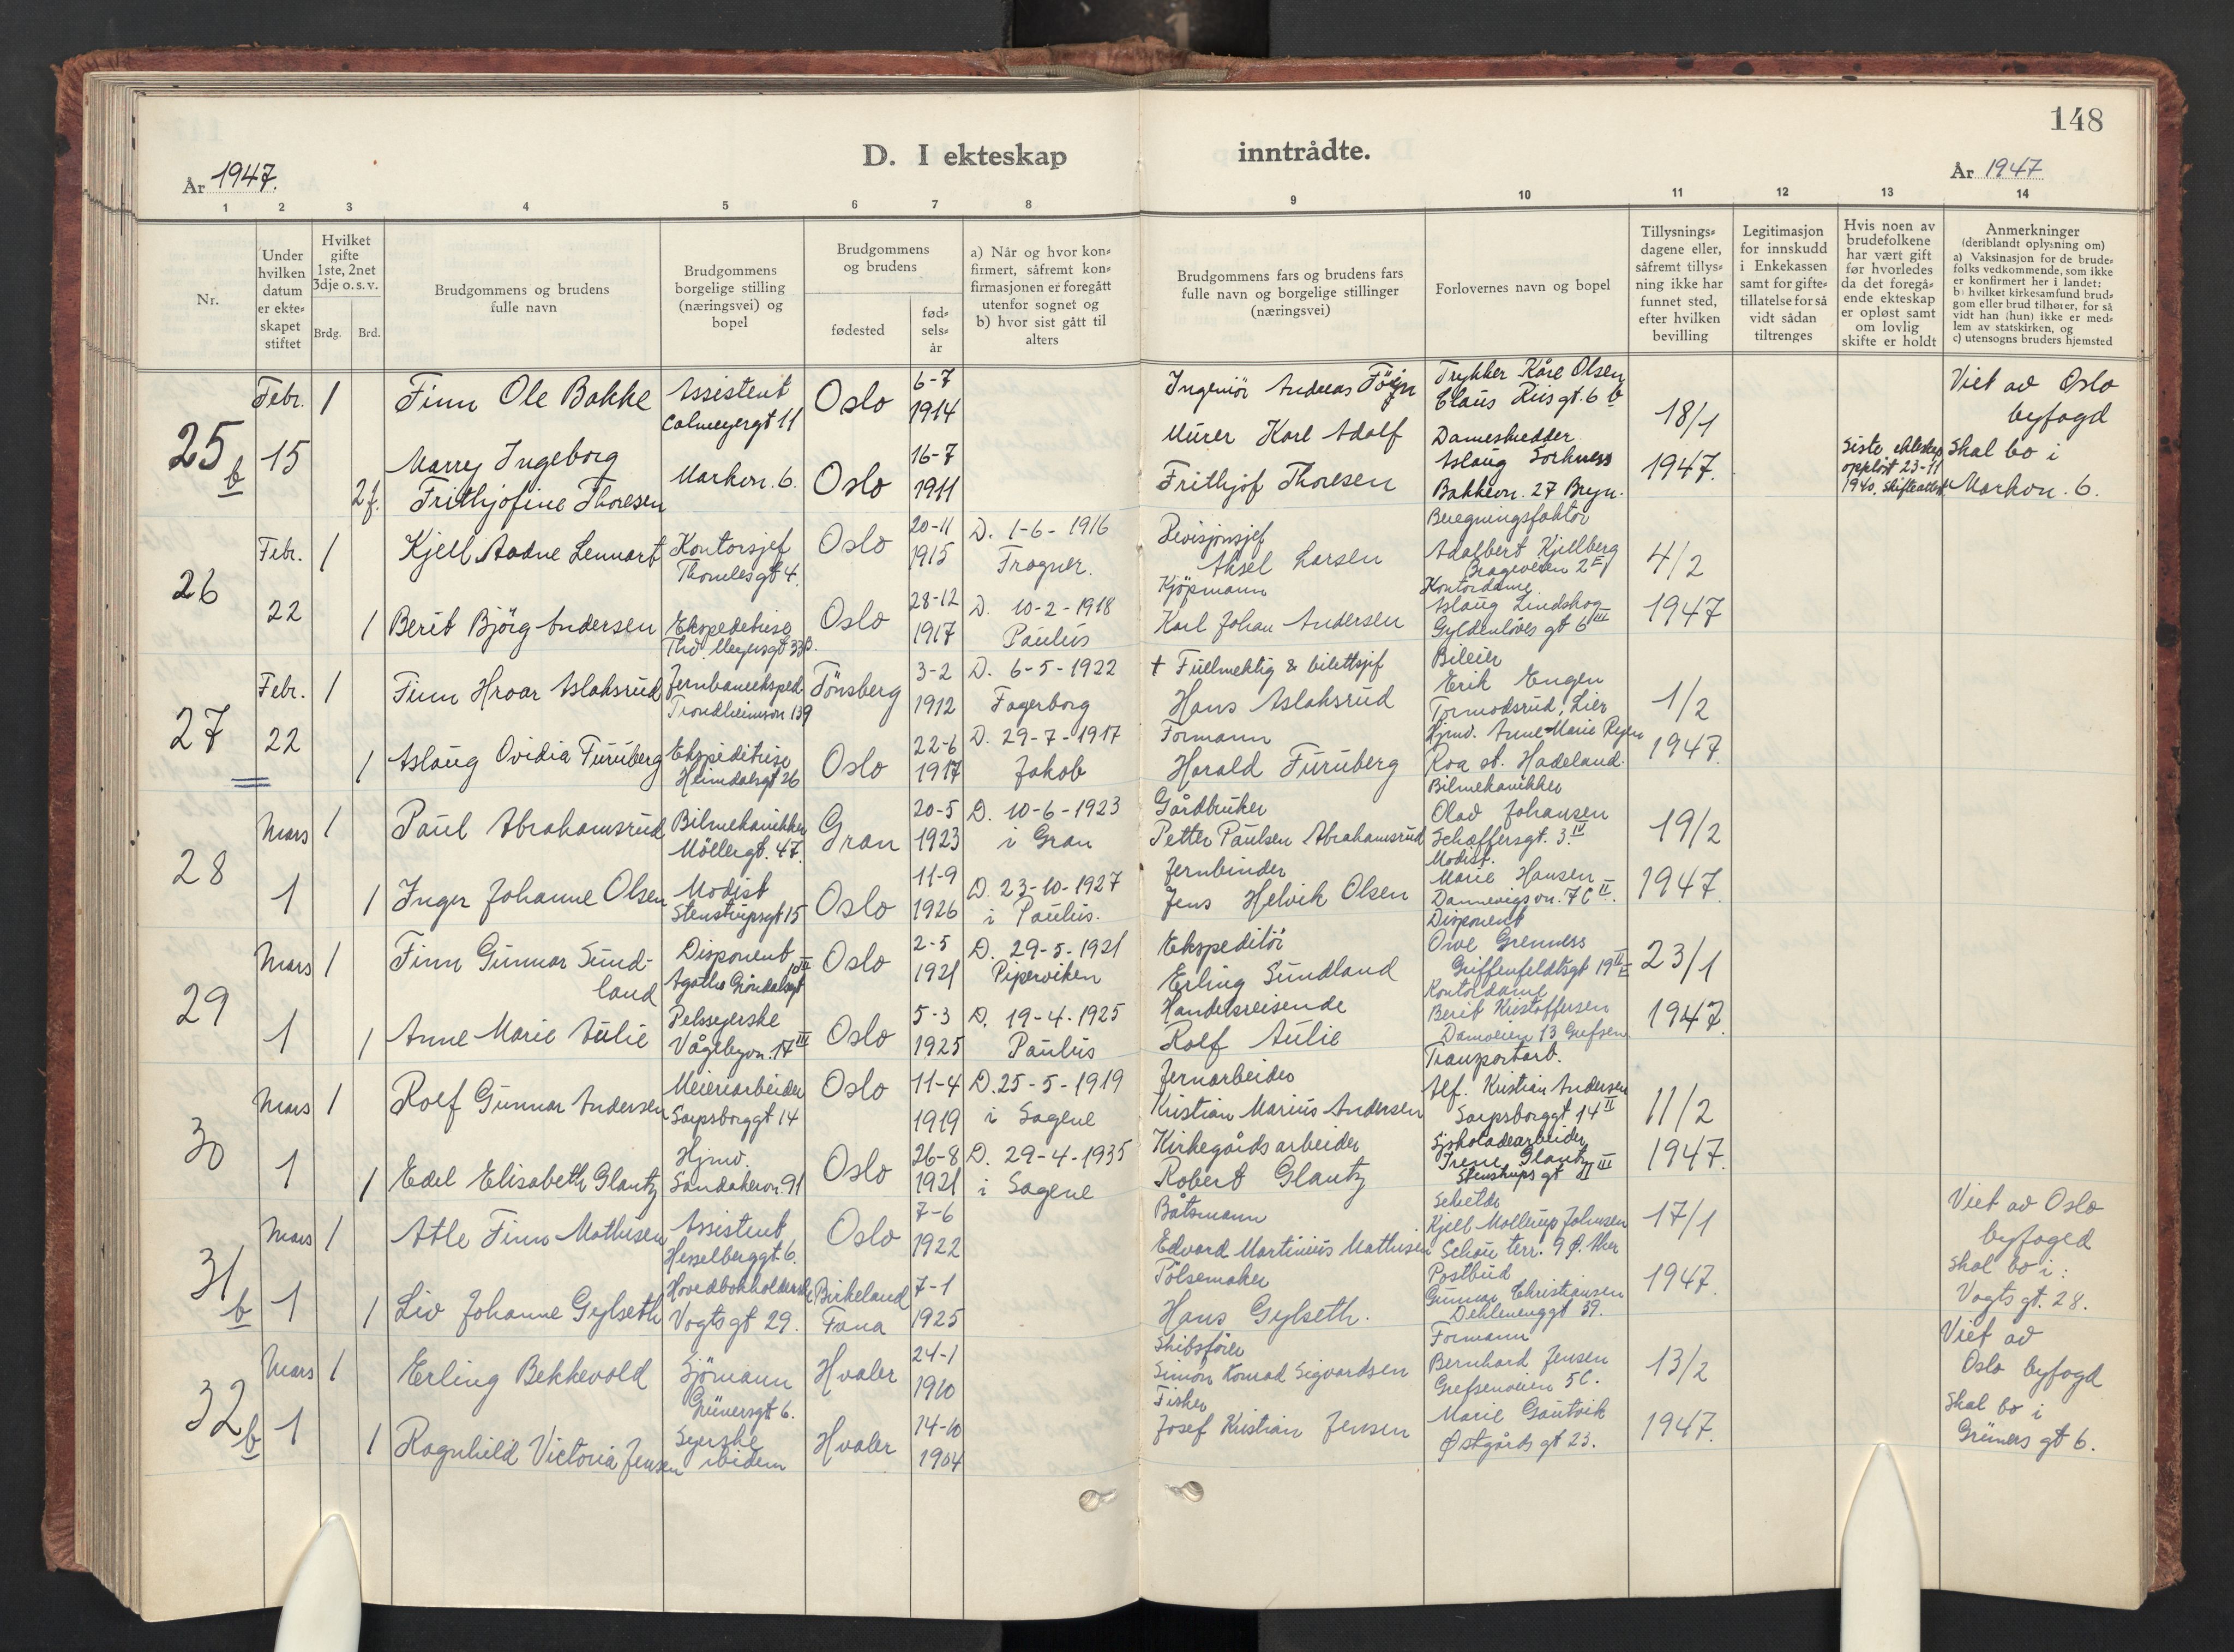 148
D. I ekteskap inntrådte.
År 1947.
År 1947
1 2 3 4 5 6 7 8 9 10 11 12 13 14
Nr.
Under hvilken datum er ekte-skapet stiftet
Hvilket gifte 1ste, 2net 3dje o.s.v.
Brdg. Brd.
Brudgommens og brudens fulle navn
Brudgommens borgelige stilling (næringsvei) og bopel
Brudgommens og brudens
fødested
fød-sels-år
a) Når og hvor kon-firmert, såfremt kon-firmasjonen er foregått utenfor sognet og b) hvor sist gått til alters
Brudgommens fars og brudens fars fulle navn og borgelige stillinger (næringsvei)
Forlovernes navn og bopel
Tillysnings-dagene eller, såfremt tillys-ning ikke har funnet sted, efter hvilken bevilling
Legitimasjon for innskudd i Enkekassen samt for gifte-tillatelse for så vidt sådan tiltrenges
Hvis noen av brudefolkene har vært gift før hvorledes da det foregå-ende ekteskap er opløst samt om lovlig skifte er holdt
Anmerkninger (deriblandt oplysning om) a) Vaksinasjon for de brude-folks vedkommende, som ikke er konfirmert her i landet: b) hvilket kirkesamfund brud-gom eller brud tilhører, for så vidt han (hun) ikke er med-lem av statskirken, og c) utensogns bruders hjemsted
25 b
Febr. 15
1
Finn Ole Bakke
Assistent
Calmeyergt 11
Oslo
6-7
1914
Ingeniör Andreas Föyn
Trykker Kåre Olsen
Claus Riisgt. 6 b
18/1
1947.
Viet av Oslo
byfogd
2 f.
Marry Ingeborg
Frithjofine Thoresen
Markvn. 6.
Oslo
16-7
1911
Murer Karl Adolf
Frithjof Thoresen
Dameskredder
Aslaug Sörkness
Bakkevn. 27 Bryn.
Siste ekteskap
opplöst 23-11
1940. Skifteattest.
Skal bo i
Markvn. 6.
26
Febr. 22
1
Kjell Aadne Lennart
Kontorsjef
Thomlesgt 4.
Oslo
20-11
1915
D. 1-6-1916
Frogner.
Revisjonsjef
Aksel Larsen
Beregningsfaktor
Adalbert Kjellberg
Brageveien 2 E
4/2
1947
1
Berit Björg Andersen
Ekspeditrise
Thv. Meyersgt 33 B.
Oslo
28-12
1917
D. 10-2-1918
Paulus
Kjöpmann
Karl Johan Andersen
Kontordame
Aslaug Lindskog
Gyldenlöves gt 6 III
27
Febr. 22
1
Finn Hroar Aslaksrud
Jernbaneeksped.
Trondheimsvn 139
Tönsberg
3-2
1912
D. 6-5-1922
Fagerborg
† Fullmektig & billettsjef
Hans Aslaksrud
Bileier
Erik Engen
Tormodsrud, Lier
1/2
1947.
1
Aslaug Ovidia Furuberg
Ekspeditrise
Heimdalsgt 26
Oslo
22-6
1917
D. 29-7-1917
Jakob
Formann
Harald Furuberg
Hjmv. Anne-Marie Rejen
Roa st. Hadeland.
28
Mars 1
1
Paul Abrahamsrud
Bilmekanikker
Möllergt. 47.
Gran
20-5
1923
D. 10-6-1923
i Gran
Gårdbruker
Petter Paulsen Abrahamsrud
Bilmekanikker
Olav Johansen
Schæffersgt. 3. IV
19/2
1947.
1
Inger Johanne Olsen
Modist
Stenstrupsgt 15
Oslo
11-9
1926
D. 23-10-1927
i Paulus.
Jernbinder
Jens Helvik Olsen
Modist.
Marie Hansen
Dannevigsvn. 7 C II.
29
Mars 1
1
Finn Gunnar Sund-
land
Disponent
Agathe Gröndalsgt 10 II
Oslo
2-5
1921
D. 29-5-1921
Piperviken
Ekspeditör
Erling Sundland
Disponent
Owe Grenness
Griffenfeldtsgt 19 II E
23/1
1947.
1
Anne Marie Aulie
Pelssyerske
Vågebyvn. 17 III
Oslo
5-3
1925
D. 19-4-1925
Paulus
Handelsreisende
Rolf Aulie
Kontordame
Berit Kristoffersen
Damveien 13 Grefsen
30
Mars 1
1
Rolf Gunnar Andersen
Meieriarbeider
Sarpsborggt 14
Oslo
11-4
1919
D. 25-5-1919
i Sagene
Jernarbeider
Kristian Marius Andersen
Transportarb.
Alf. Kristian Andersen
Sarpsborggt 14 II
11/2
1947.
1
Edel Elisabeth Glantz
Hjmv.
Sandakervn. 91
Oslo
26-8
1921
D. 29-4-1935
i Sagene
Kirkegårdsarbeider
Robert Glantz
Sjokoladearbeider
Irene Glantz
Stenstrups gt 11 III
31 b
Mars 1
1
Atle Finn Mathisen
Assistent
Hesselberggt 6.
Oslo
7-6
1922
Båtsmann
Edvard Martinius Mathisen
Kjell Mollerup Johnsen
Schous terr. 9 Ø. Aker
17/1
1947.
Viet av Oslo
byfoged
1
Liv Johanne Gylseth
Hovedbokholderske
Vogtsgt 29.
Birkeland
Fana
7-1
1925
Pölsemaker
Hans Gylseth.
Postbud
Gunnar Christiansen
Dehlenenggt 39.
Skal bo i:
Vogts gt. 28.
32 b
Mars 1
1
Erling Bekkevold
Sjömann
Grünersgt 6.
Hvaler
24-1
1910
Skibsförer
Simon Konrad Sigvardsen
Formann
Bernhard Jensen
Grefsenveien 5 C.
13/2
1947.
Viet av
Oslo byfogd
1
Ragnhild Victoria Jensen
Syerske
ibidem
Hvaler
14-10
1904
Fisker
Josef Kristian Jensen
Marie Gautvik
Østgårds gt 23.
Skal bo i
Grüners gt 6.